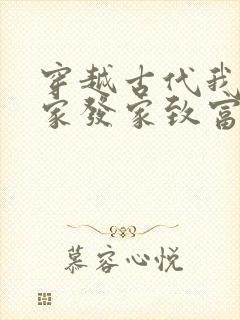 穿越古代我
家發家致富
慕容心悦